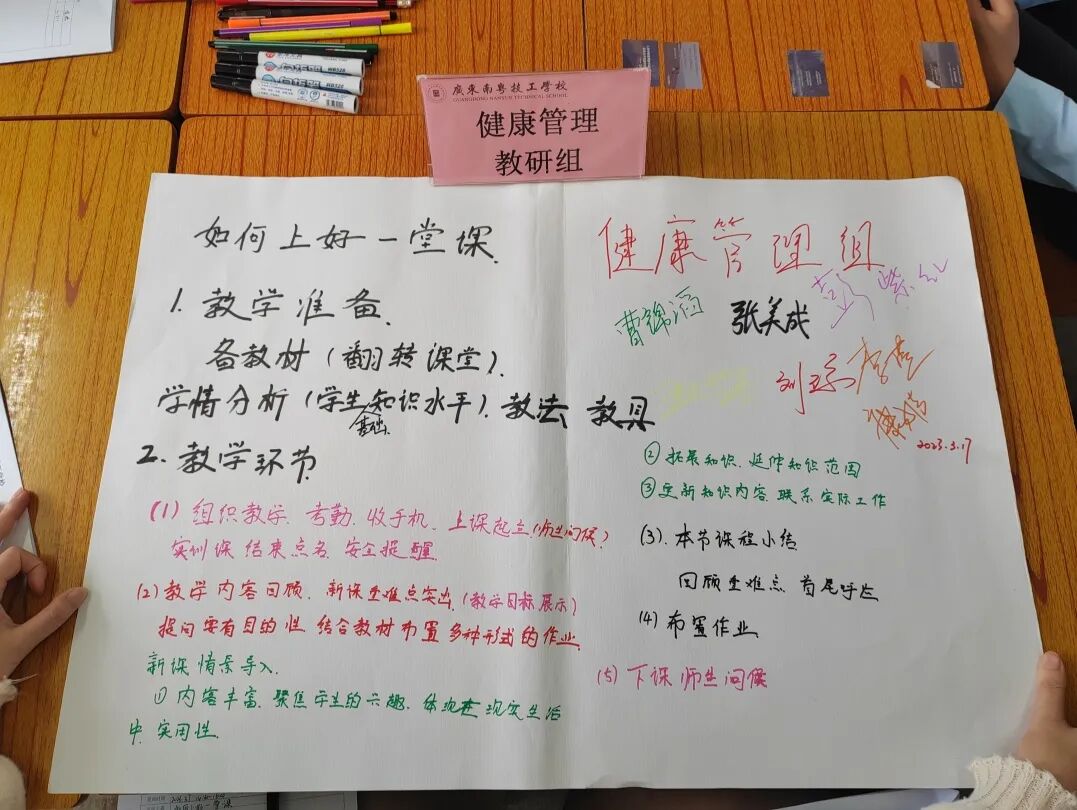 廣東南粵技工學校
GUANGDONG NANYUE TECHNICAL SCHOOL
健康管理
教研组
如何上好一堂课.
1. 教学准备.
备教材（翻转课堂）.
学情分析（学生基础知识水平）. 教法 教具
2. 教学环节
(1) 组织教学. 考勤. 收手机. 上课起立(师生问候)
实训课 结束点名. 安全提醒.
(2) 教学内容回顾. 新课重难点突出.（教学目标展示）
提问要有目的性 结合教材布置 多种形式的作业.
新课情景导入.
① 内容丰富. 聚焦学生的兴趣. 体现在现实生活
中. 实用性.
健康管理组
张美成
2023.3.17
② 拓展知识. 延伸知识范围
③ 更新知识内容 联系实际工作
(3). 本节课程小结
回顾重难点 首尾呼应
(4) 布置作业
(5) 下课师生问候